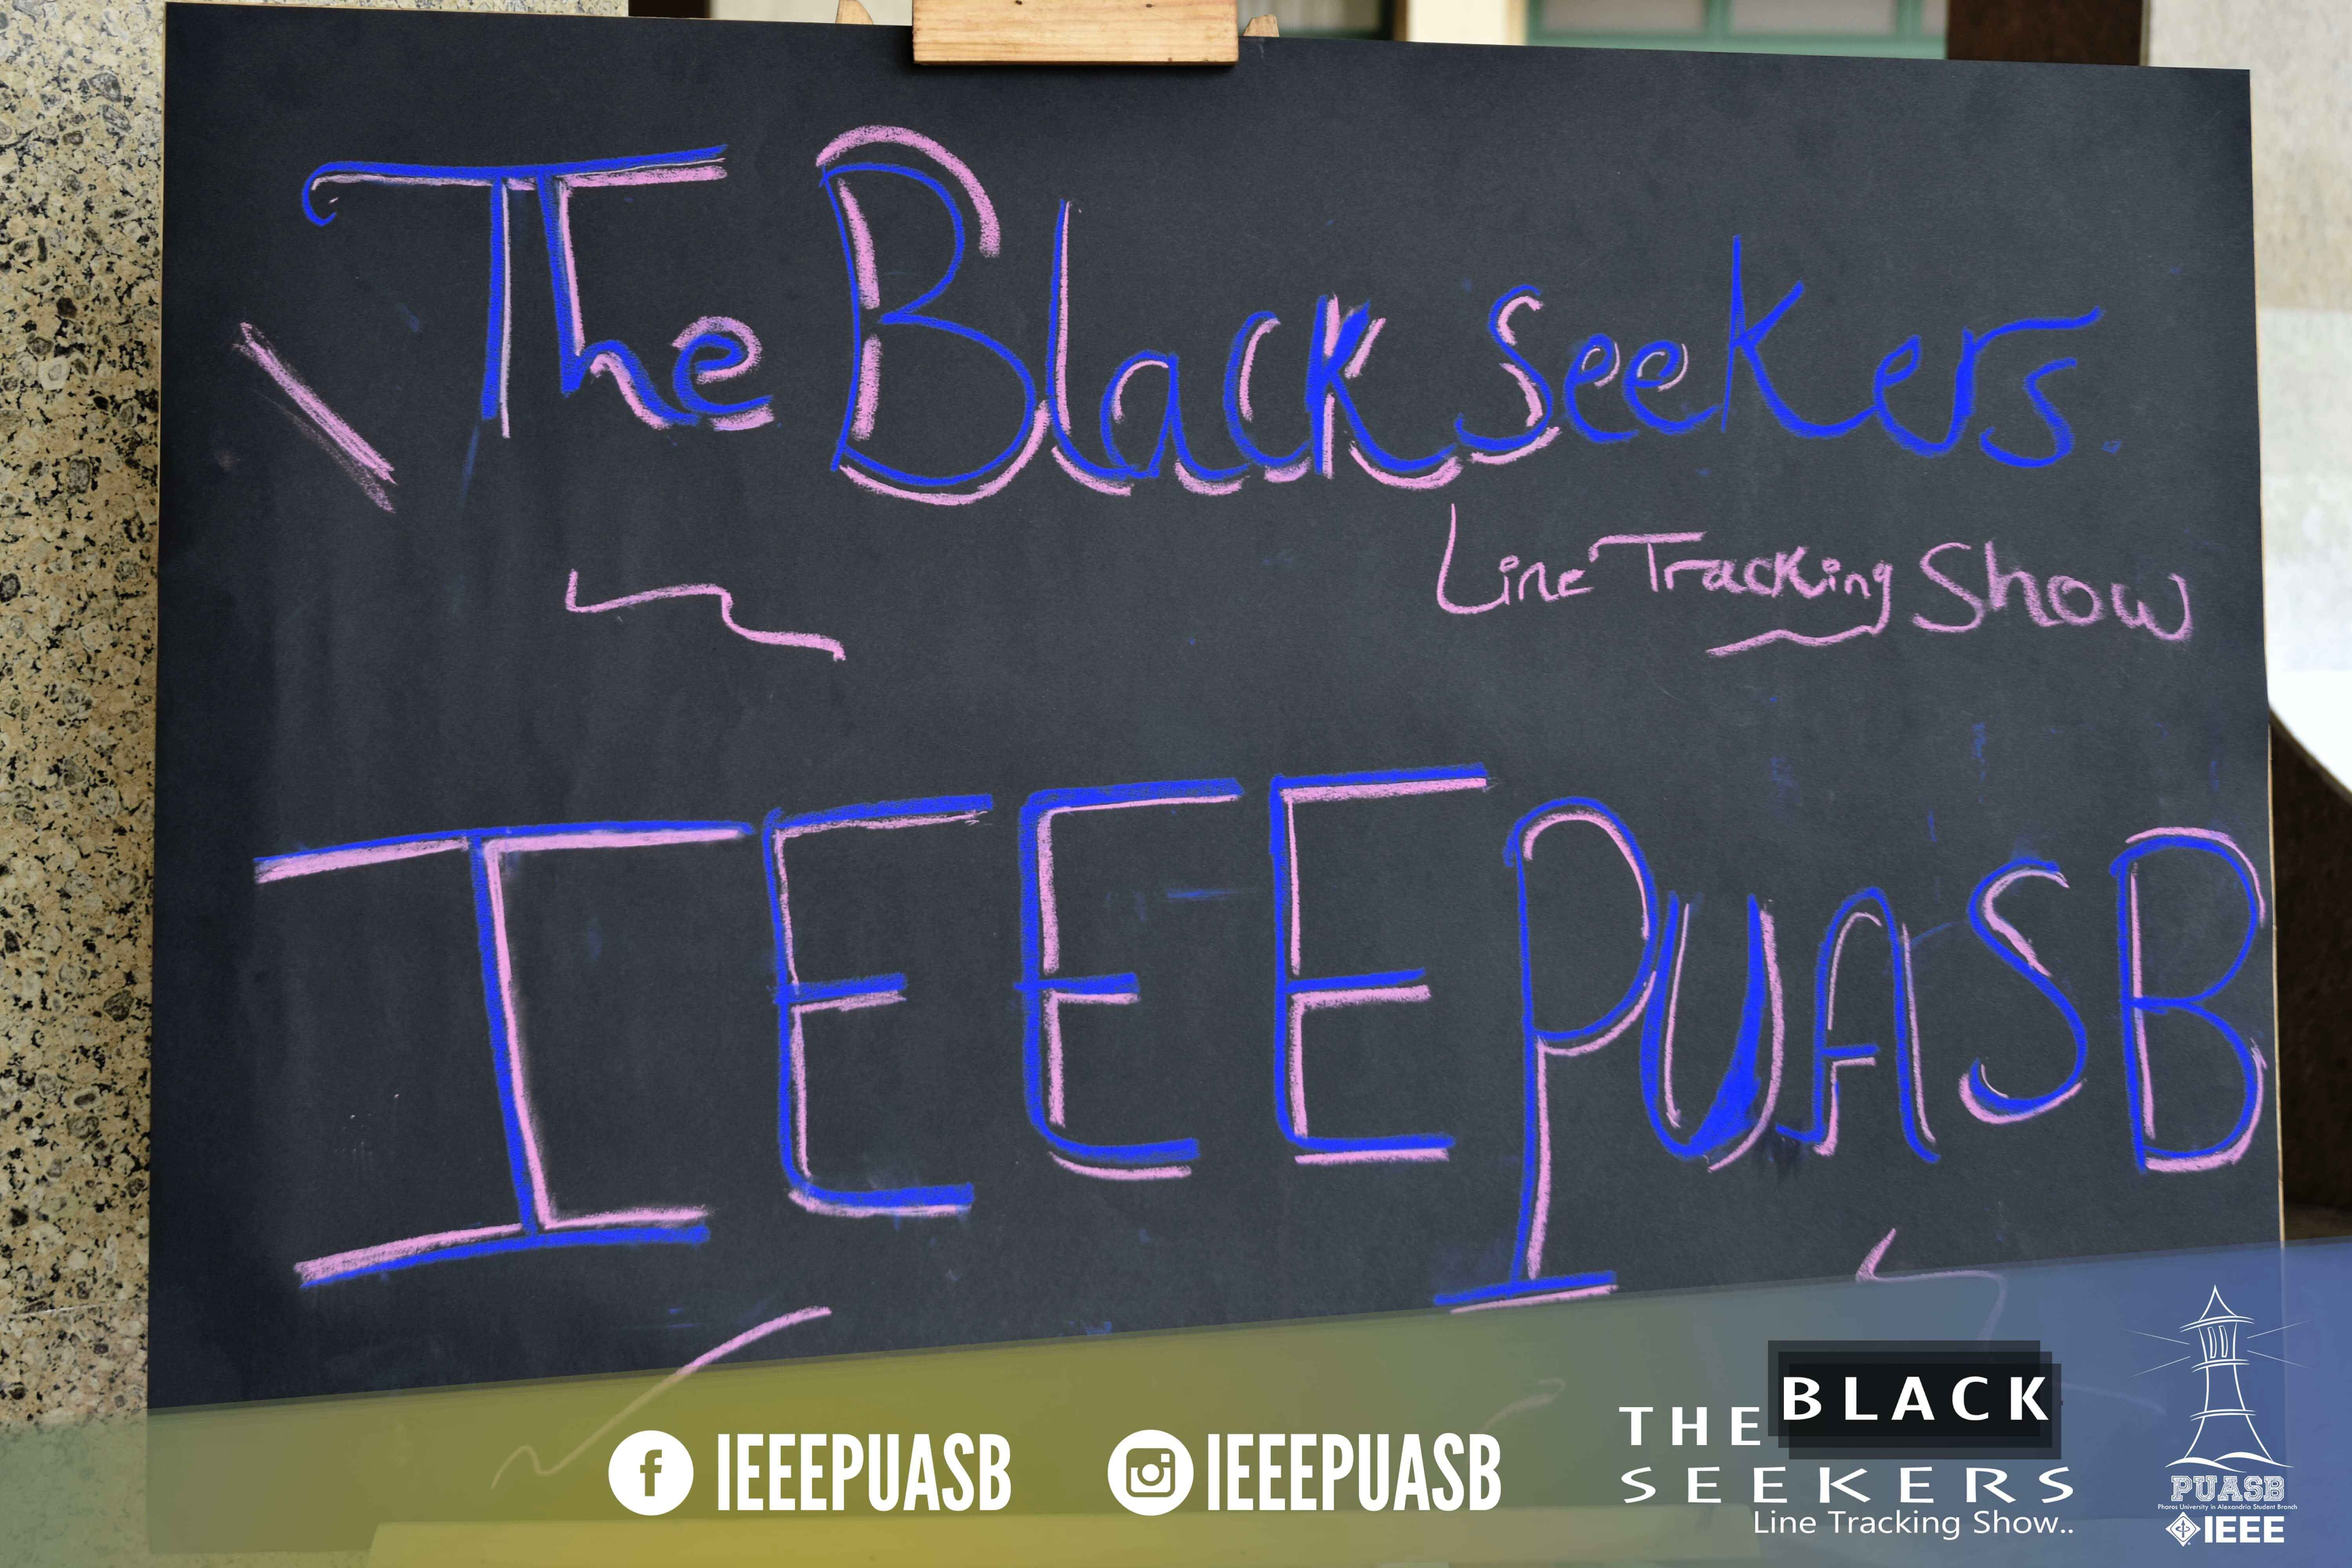 The Black Seekers.
Line Tracking Show
IEEE PUASB
IEEEPUASB
IEEEPUASB
THE BLACK
SEEKERS
Line Tracking Show..
PUASB
Pharos University in Alexandria Student Branch
IEEE